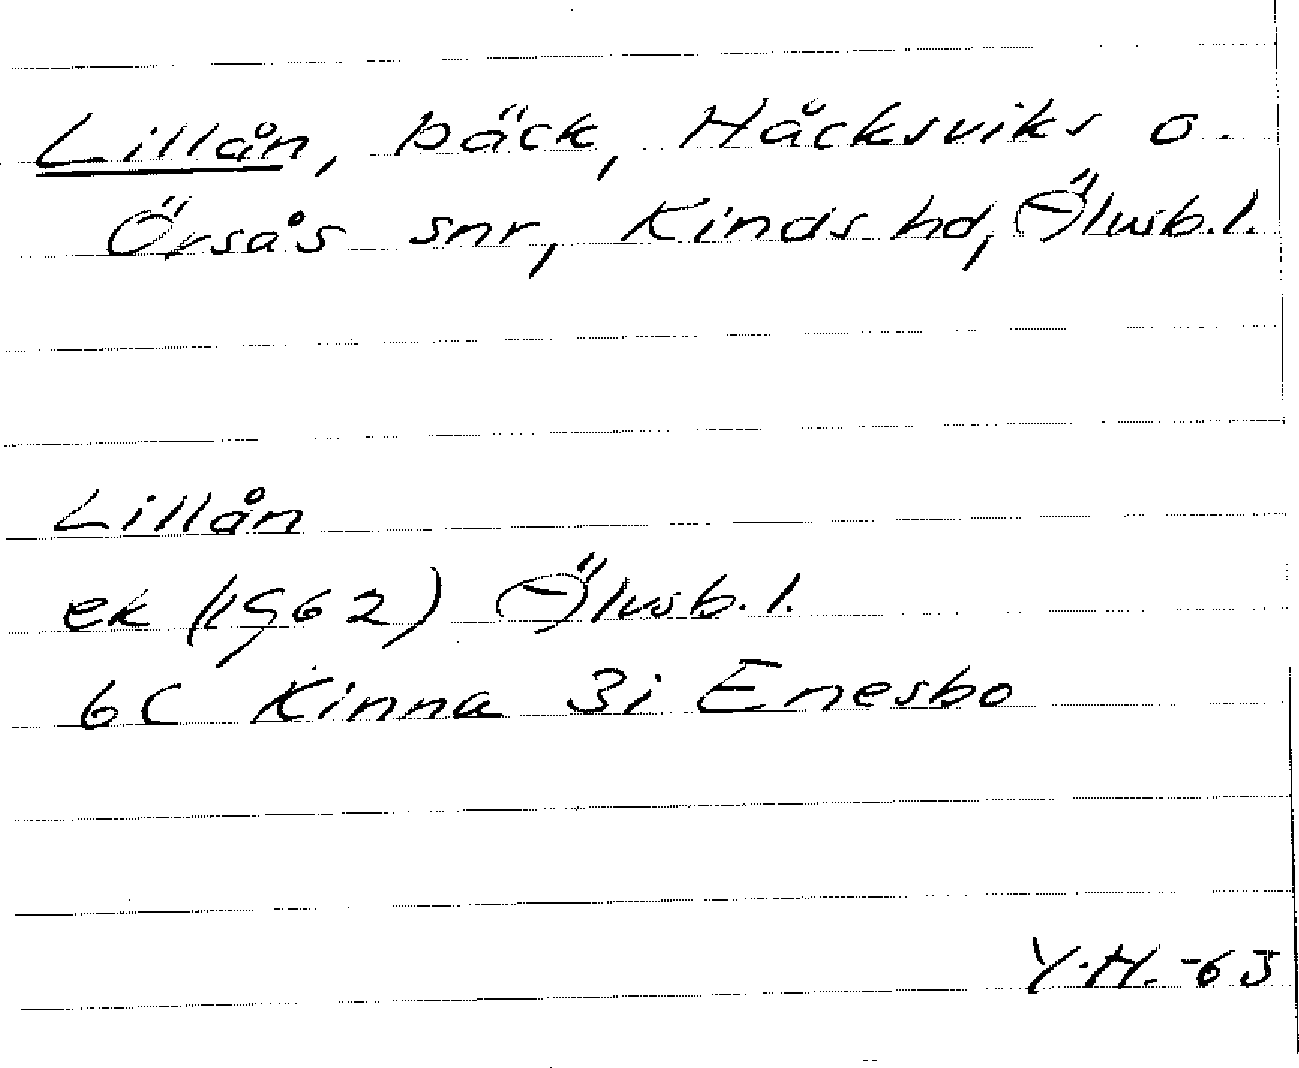 Lillån, bäck, Håcksviks o.
Örsås snr, Kinds hd, Älvsb.l.
Lillån
ek (1962) Älvsb.l.
6C Kinna 3i Enesbo
Y.H. -63